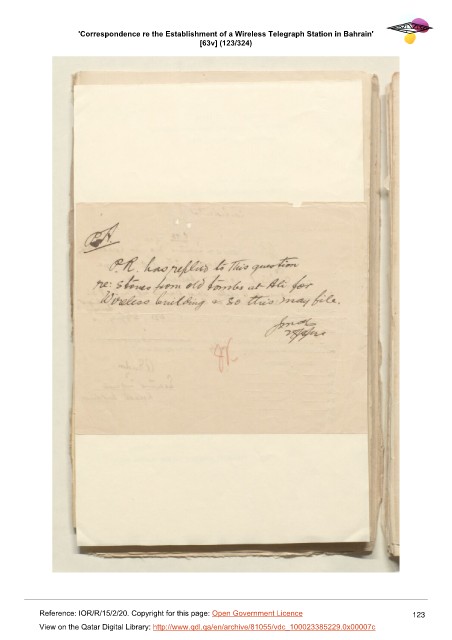 'Correspondence re the Establishment of a Wireless Telegraph Station in Bahrain'
[63v] (123/324)
P.R. has replied to this question
re: stones from old tombs at Ali for
Wireless building & so this may file.
Reference: IOR/R/15/2/20. Copyright for this page: Open Government Licence
123
View on the Qatar Digital Library: http://www.qdl.qa/en/archive/81055/vdc_100023385229.0x00007c